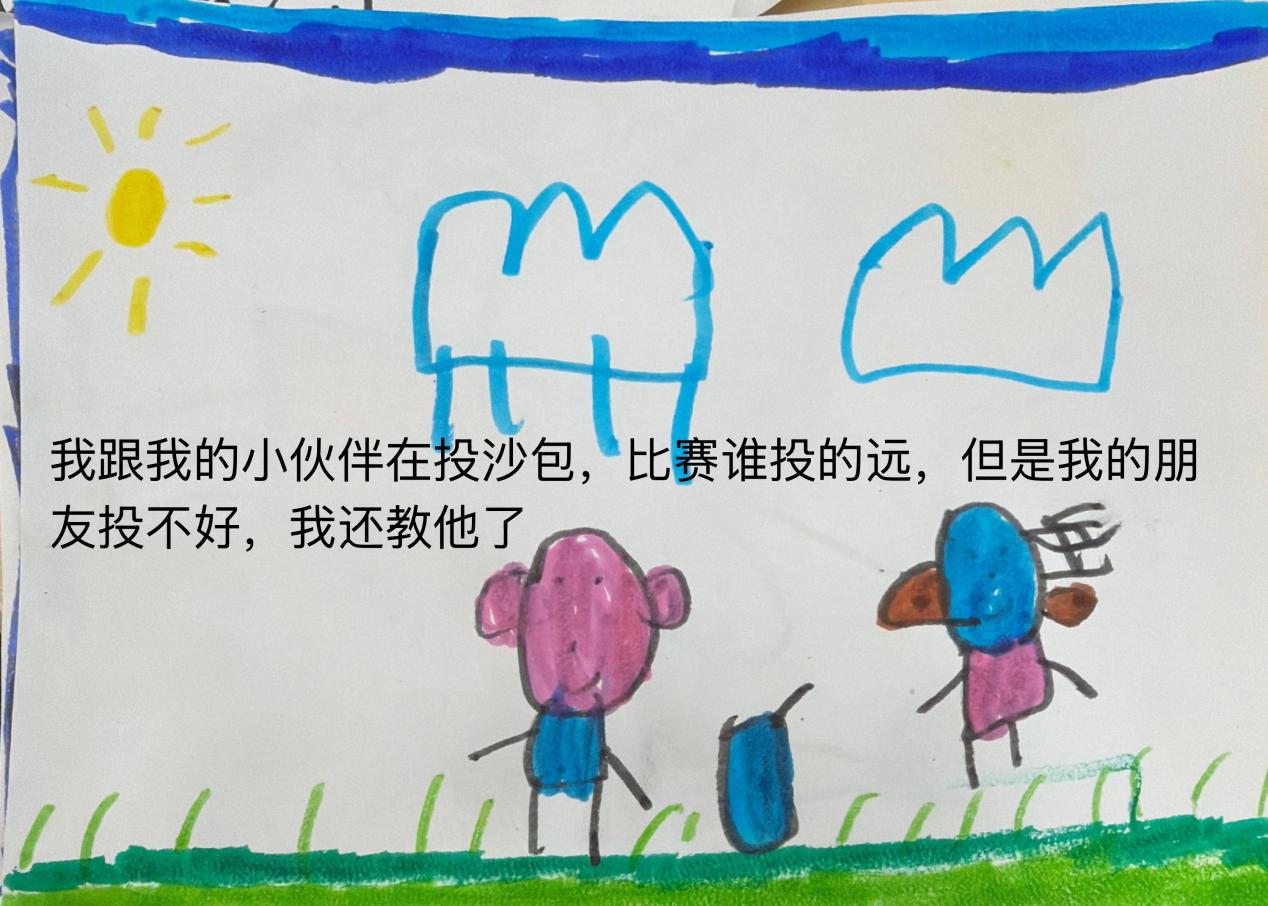 我跟我的小伙伴在投沙包，比赛谁投的远，但是我的朋
友投不好，我还教他了